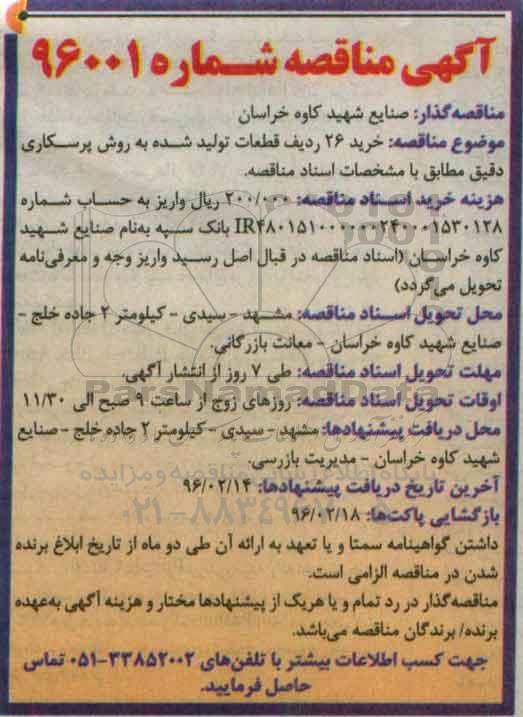 آگهی مناقصه شماره ۹۶۰۰۱
مناقصه‌گذار: صنایع شهید کاوه خراسان
موضوع مناقصه: خرید ۲۶ ردیف قطعات تولید شده به روش پرسکاری
دقیق مطابق با مشخصات اسناد مناقصه.
هزینه خرید اسناد مناقصه: ۲۰۰/۰۰۰ ریال واریز به حساب شماره
IR۴۸۰۱۵۱۰۰۰۰۰۰۰۲۴۰۰۰۱۵۳۰۱۲۸ بانک سپه به‌نام صنایع شهید
کاوه خراسان (اسناد مناقصه در قبال اصل رسید واریز وجه و معرفی‌نامه
تحویل می‌گردد)
محل تحویل اسناد مناقصه: مشهد - سیدی - کیلومتر ۲ جاده خلج -
صنایع شهید کاوه خراسان - معانت بازرگانی.
مهلت تحویل اسناد مناقصه: طی ۷ روز از انتشار آگهی.
ParsNamadData
اوقات تحویل اسناد مناقصه: روزهای زوج از ساعت ۹ صبح الی ۱۱/۳۰
محل دریافت پیشنهادها: مشهد - سیدی - کیلومتر ۲ جاده خلج - صنایع
شهید کاوه خراسان - مدیریت بازرسی.
آخرین تاریخ دریافت پیشنهادها: ۹۶/۰۲/۱۴
بازگشایی پاکت‌ها: ۹۶/۰۲/۱۸
داشتن گواهینامه سمتا و یا تعهد به ارائه آن طی دو ماه از تاریخ ابلاغ برنده
شدن در مناقصه الزامی است.
مناقصه‌گذار در رد تمام و یا هریک از پیشنهادها مختار و هزینه آگهی به‌عهده
برنده/ برندگان مناقصه می‌باشد.
جهت کسب اطلاعات بیشتر با تلفن‌های ۳۳۸۵۲۰۰۲-۰۵۱ تماس
حاصل فرمایید.